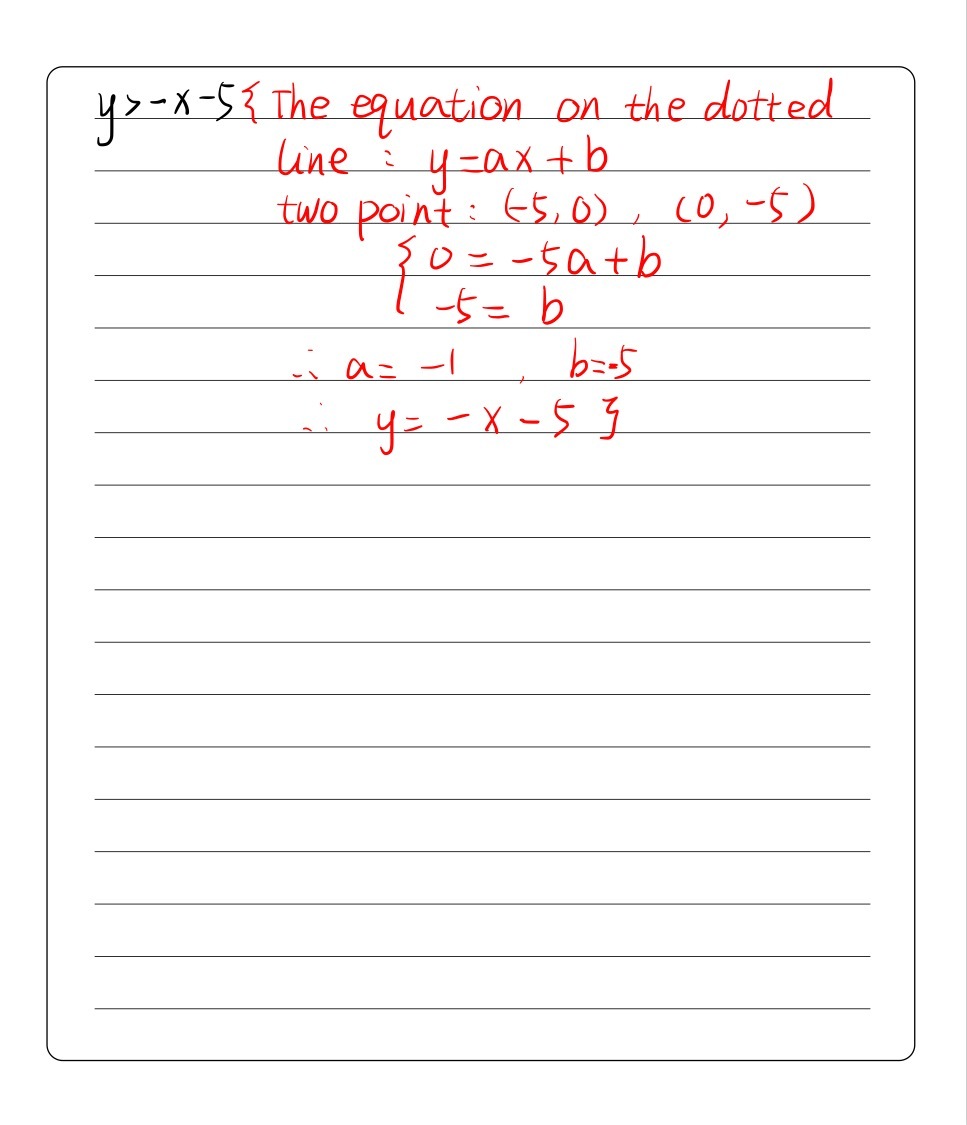 y>-x-5{The equation on the dotted
line : y=ax+b
two point: (-5,0), (0,-5)
{0=-5a+b
-5=b
∴ a=-1, b=-5
∴ y=-x-5}